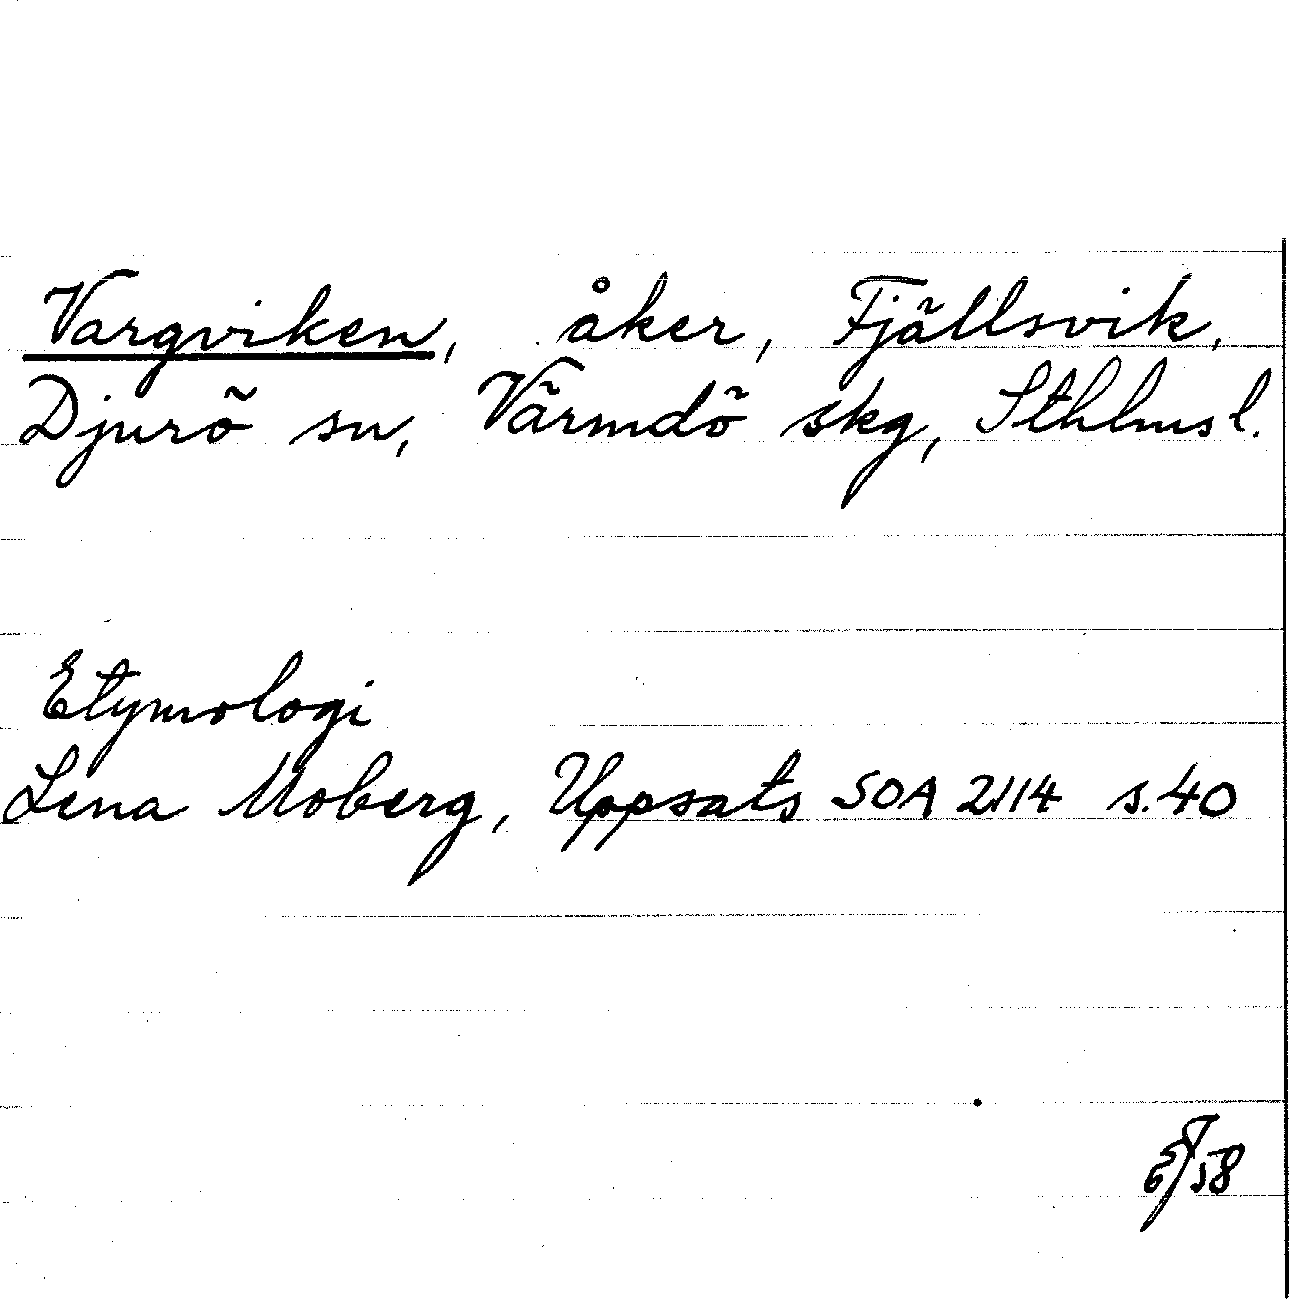 Vargviken, åker, Fjällsvik,
Djurö sn, Värmdö skg, Sthlms l.
Etymologi
Lena Moberg, Uppsats SOA 2114 s.40